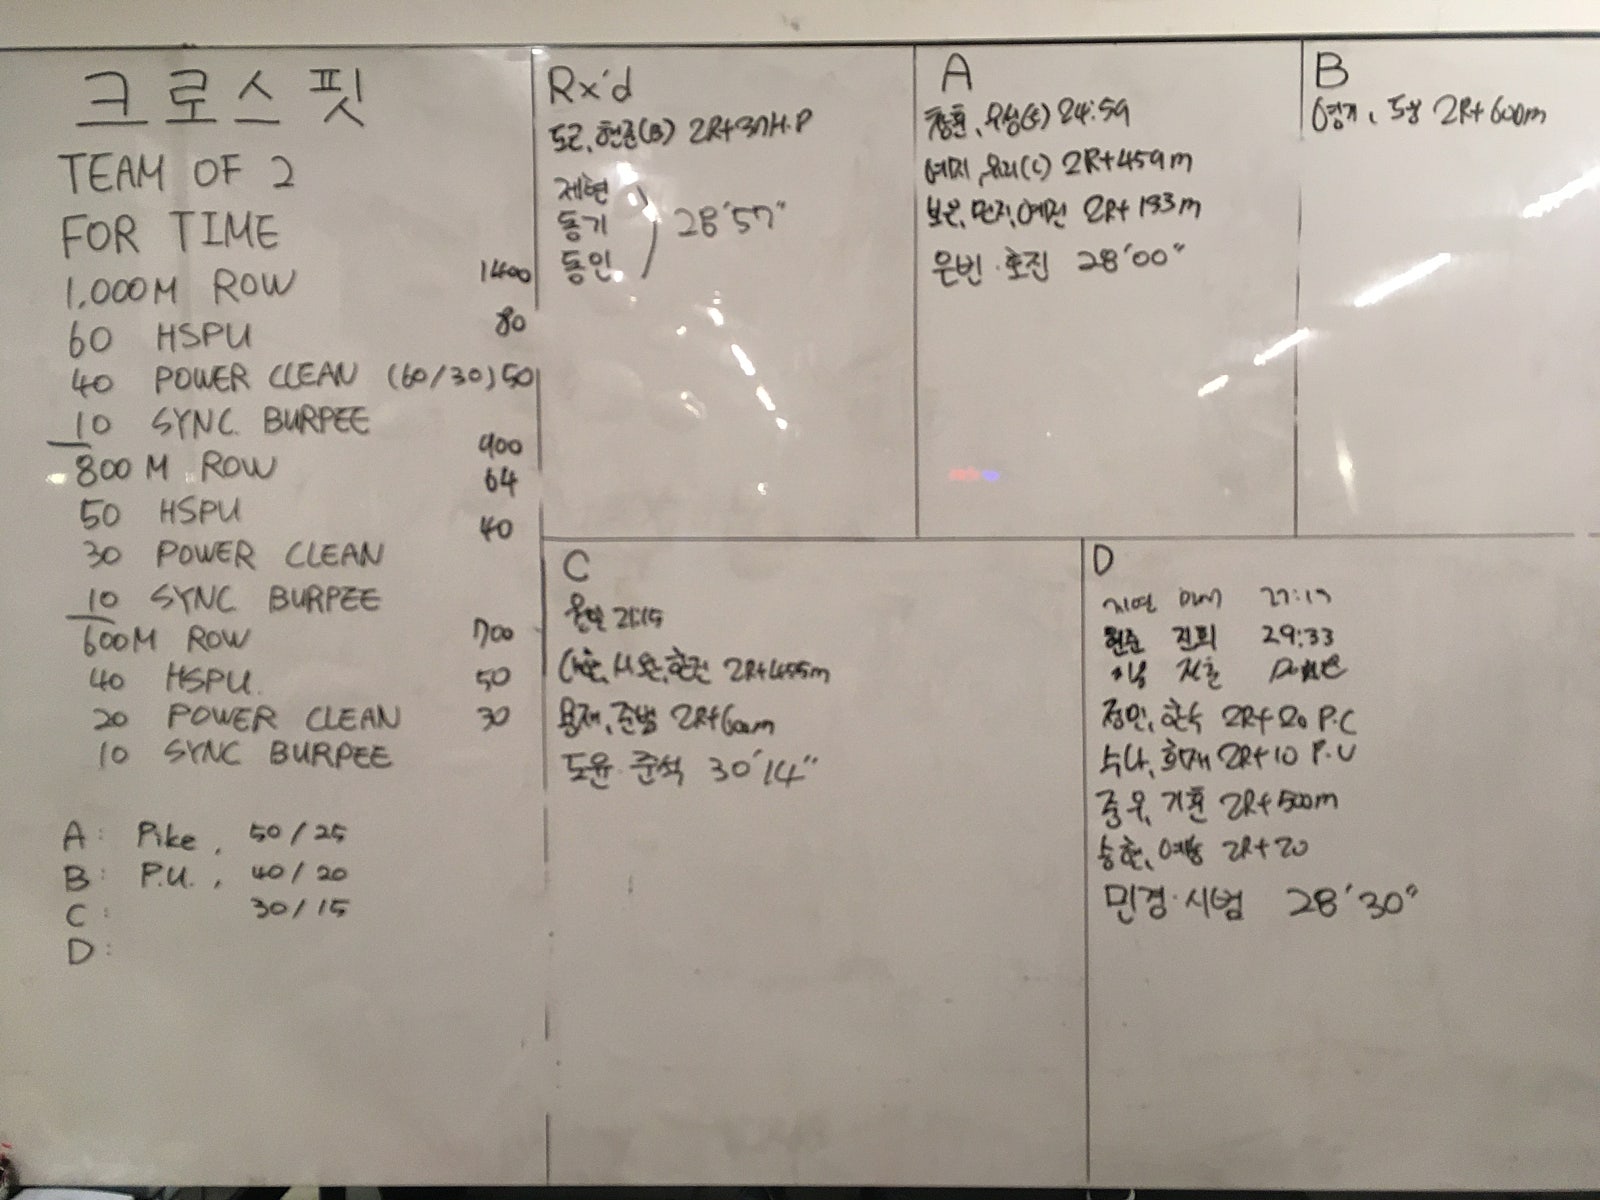 크로스핏
TEAM OF 2
FOR TIME
1,000M ROW 1400
60 HSPU 80
40 POWER CLEAN (60/30) 50
10 SYNC. BURPEE
800M ROW 900
50 HSPU 64
30 POWER CLEAN 40
10 SYNC BURPEE
600M ROW 700
40 HSPU. 50
20 POWER CLEAN 30
10 SYNC BURPEE
A: Pike, 50/25
B: P.U., 40/20
C: 30/15
D:
Rx'd
도근, 현준(B) 2R+37H.P
제현
동기 28'57"
동인
A
24:59
2R+459m
2R+193m
은빈·호진 28'00"
B
2R+600m
C
21:15
2R+455m
준범 2R+600m
도윤·준석 30'14"
D
지연
현준 진희 29:33
정민, 한숙 2R+20 P.C
2R+10 P.U
중우, 기훈 2R+500m
2R+20
민경·시범 28'30"